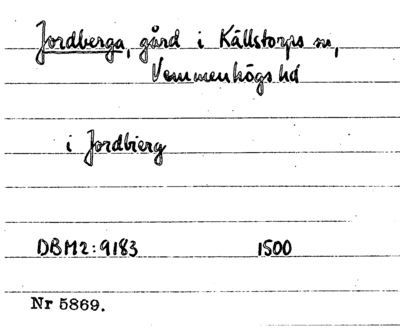 Jordberga, gård i Källstorps sn,
Vemmenhögs hd
i Jordbierg
DBM2:9183 1500
Nr 5869.